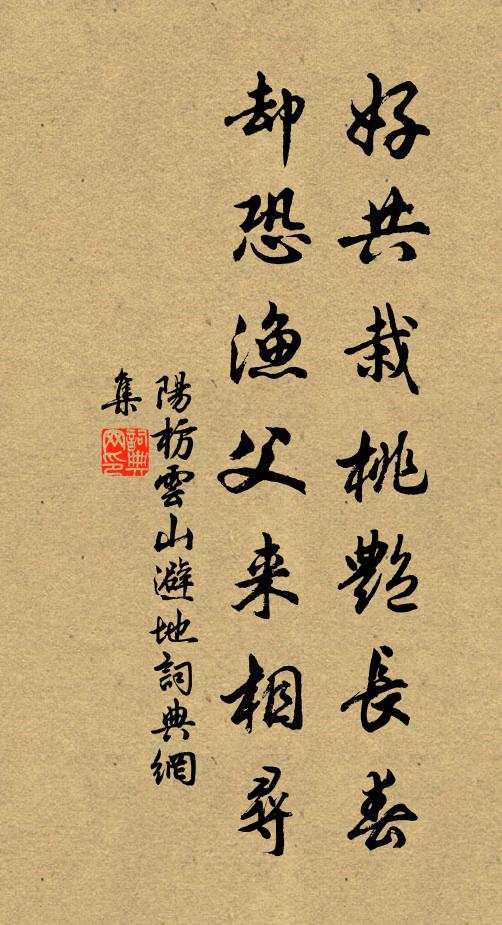 好共栽桃艷長春
却恐漁父来相尋
陽枋雲山避地詞典網
集
詞典
網印